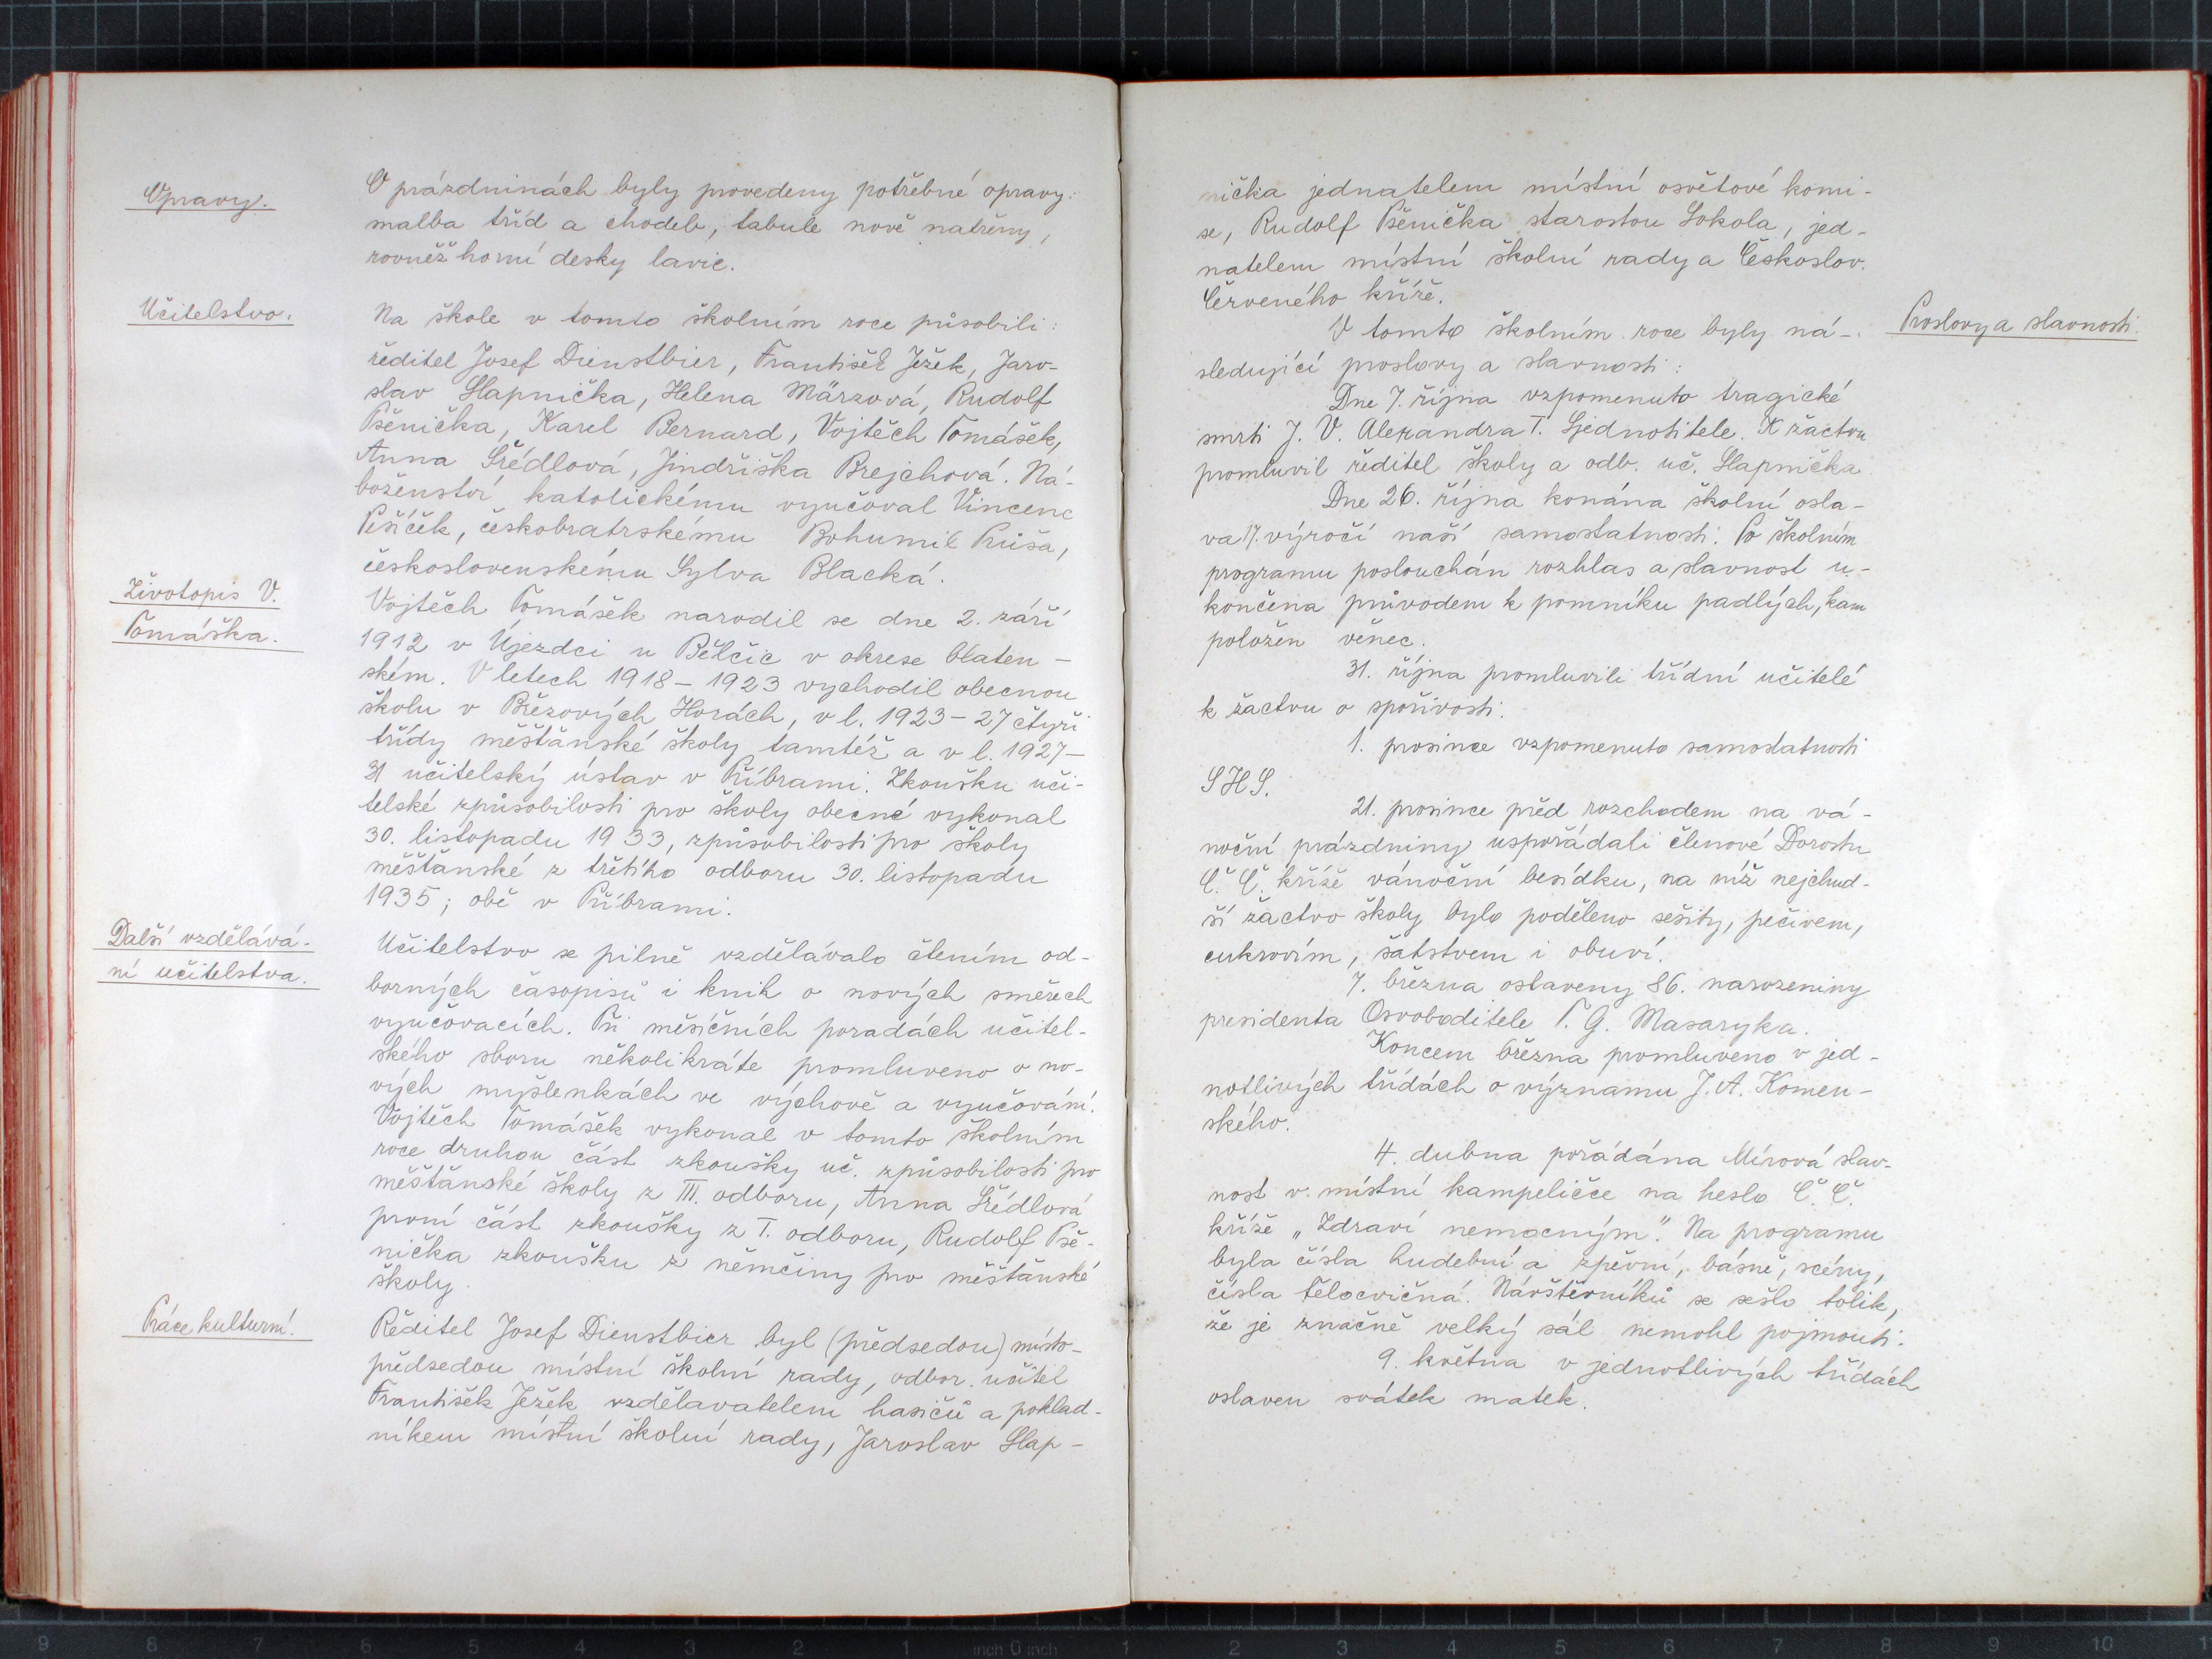 Opravy.
O prázdninách byly provedeny potřebné opravy:
malba tříd a chodeb, tabule nově natřeny,
rovněž horní desky lavic.
Učitelstvo.
Na škole v tomto školním roce působili:
ředitel Josef Dienstbier, František Ježek, Jaro-
slav Slapnička, Helena Märzová, Rudolf
Pšenička, Karel Bernard, Vojtěch Tomášek,
Anna Šrédlová, Jindřiška Brejchová. Ná-
boženství katolickému vyučoval Vincenc
Pešíček, českobratrskému Bohumil Průša,
československému Sylva Blacká.
Životopis V.
Tomáška.
Vojtěch Tomášek narodil se dne 2. září
1912 v Újezdci u Bělčic v okrese blaten-
ském. V letech 1918–1923 vychodil obecnou
školu v Březových Horách, v l. 1923–27 čtyři
třídy měšťanské školy tamtéž a v l. 1927–
31 učitelský ústav v Příbrami. Zkoušku uči-
telské způsobilosti pro školy obecné vykonal
30. listopadu 1933, způsobilosti pro školy
měšťanské z třetího odboru 30. listopadu
1935; obě v Příbrami.
Další vzdělává-
ní učitelstva.
Učitelstvo se pilně vzdělávalo čtením od-
borných časopisů i knih o nových směrech
vyučovacích. Při měsíčních poradách učitel-
ského sboru několikráte promluveno o no-
vých myšlenkách ve výchově a vyučování.
Vojtěch Tomášek vykonal v tomto školním
roce druhou část zkoušky uč. způsobilosti pro
měšťanské školy z III. odboru, Anna Šrédlová
první část zkoušky z I. odboru, Rudolf Pše-
nička zkoušku z němčiny pro měšťanské
školy.
Práce kulturní.
Ředitel Josef Dienstbier byl (předsedou) místo-
předsedou místní školní rady, odbor. učitel
František Ježek vzdělavatelem hasičů a poklad-
níkem místní školní rady, Jaroslav Slap-
nička jednatelem místní osvětové komi-
se, Rudolf Pšenička starostou Sokola, jed-
natelem místní školní rady a Českoslov.
Červeného kříže.
Proslovy a slavnosti.
V tomto školním roce byly ná-
sledující proslovy a slavnosti:
Dne 7. října vzpomenuto tragické
smrti J. V. Alexandra I. Sjednotitele. K žactvu
promluvil ředitel školy a odb. uč. Slapnička
Dne 26. října konána školní osla-
va 17. výročí naší samostatnosti. Po školním
programu poslouchán rozhlas a slavnost u-
končena průvodem k pomníku padlých, kam
položen věnec.
31. října promluvili třídní učitelé
k žactvu o spořivosti.
1. prosince vzpomenuto samostatnosti
SHS.
21. prosince před rozchodem na vá-
noční prázdniny uspořádali členové Dorostu
Č. Č. kříže vánoční besídku, na níž nejchud-
ší žactvo školy bylo poděleno sešity, pečivem,
cukrovím, šatstvem i obuví.
7. března oslaveny 86. narozeniny
presidenta Osvoboditele T. G. Masaryka.
Koncem března promluveno v jed-
notlivých třídách o významu J. A. Komen-
ského.
4. dubna pořádána Mírová slav-
nost v místní kampeličce na heslo Č. Č.
kříže „Zdraví nemocným". Na programu
byla čísla hudební a zpěvní, básně, scény,
čísla tělocvičná. Návštěvníků se sešlo tolik,
že je značně velký sál nemohl pojmouti.
9. května v jednotlivých třídách
oslaven svátek matek.
9 8 7 6 5 4 3 2 1 inch 0 inch 1 2 3 4 5 6 7 8 9 10 1